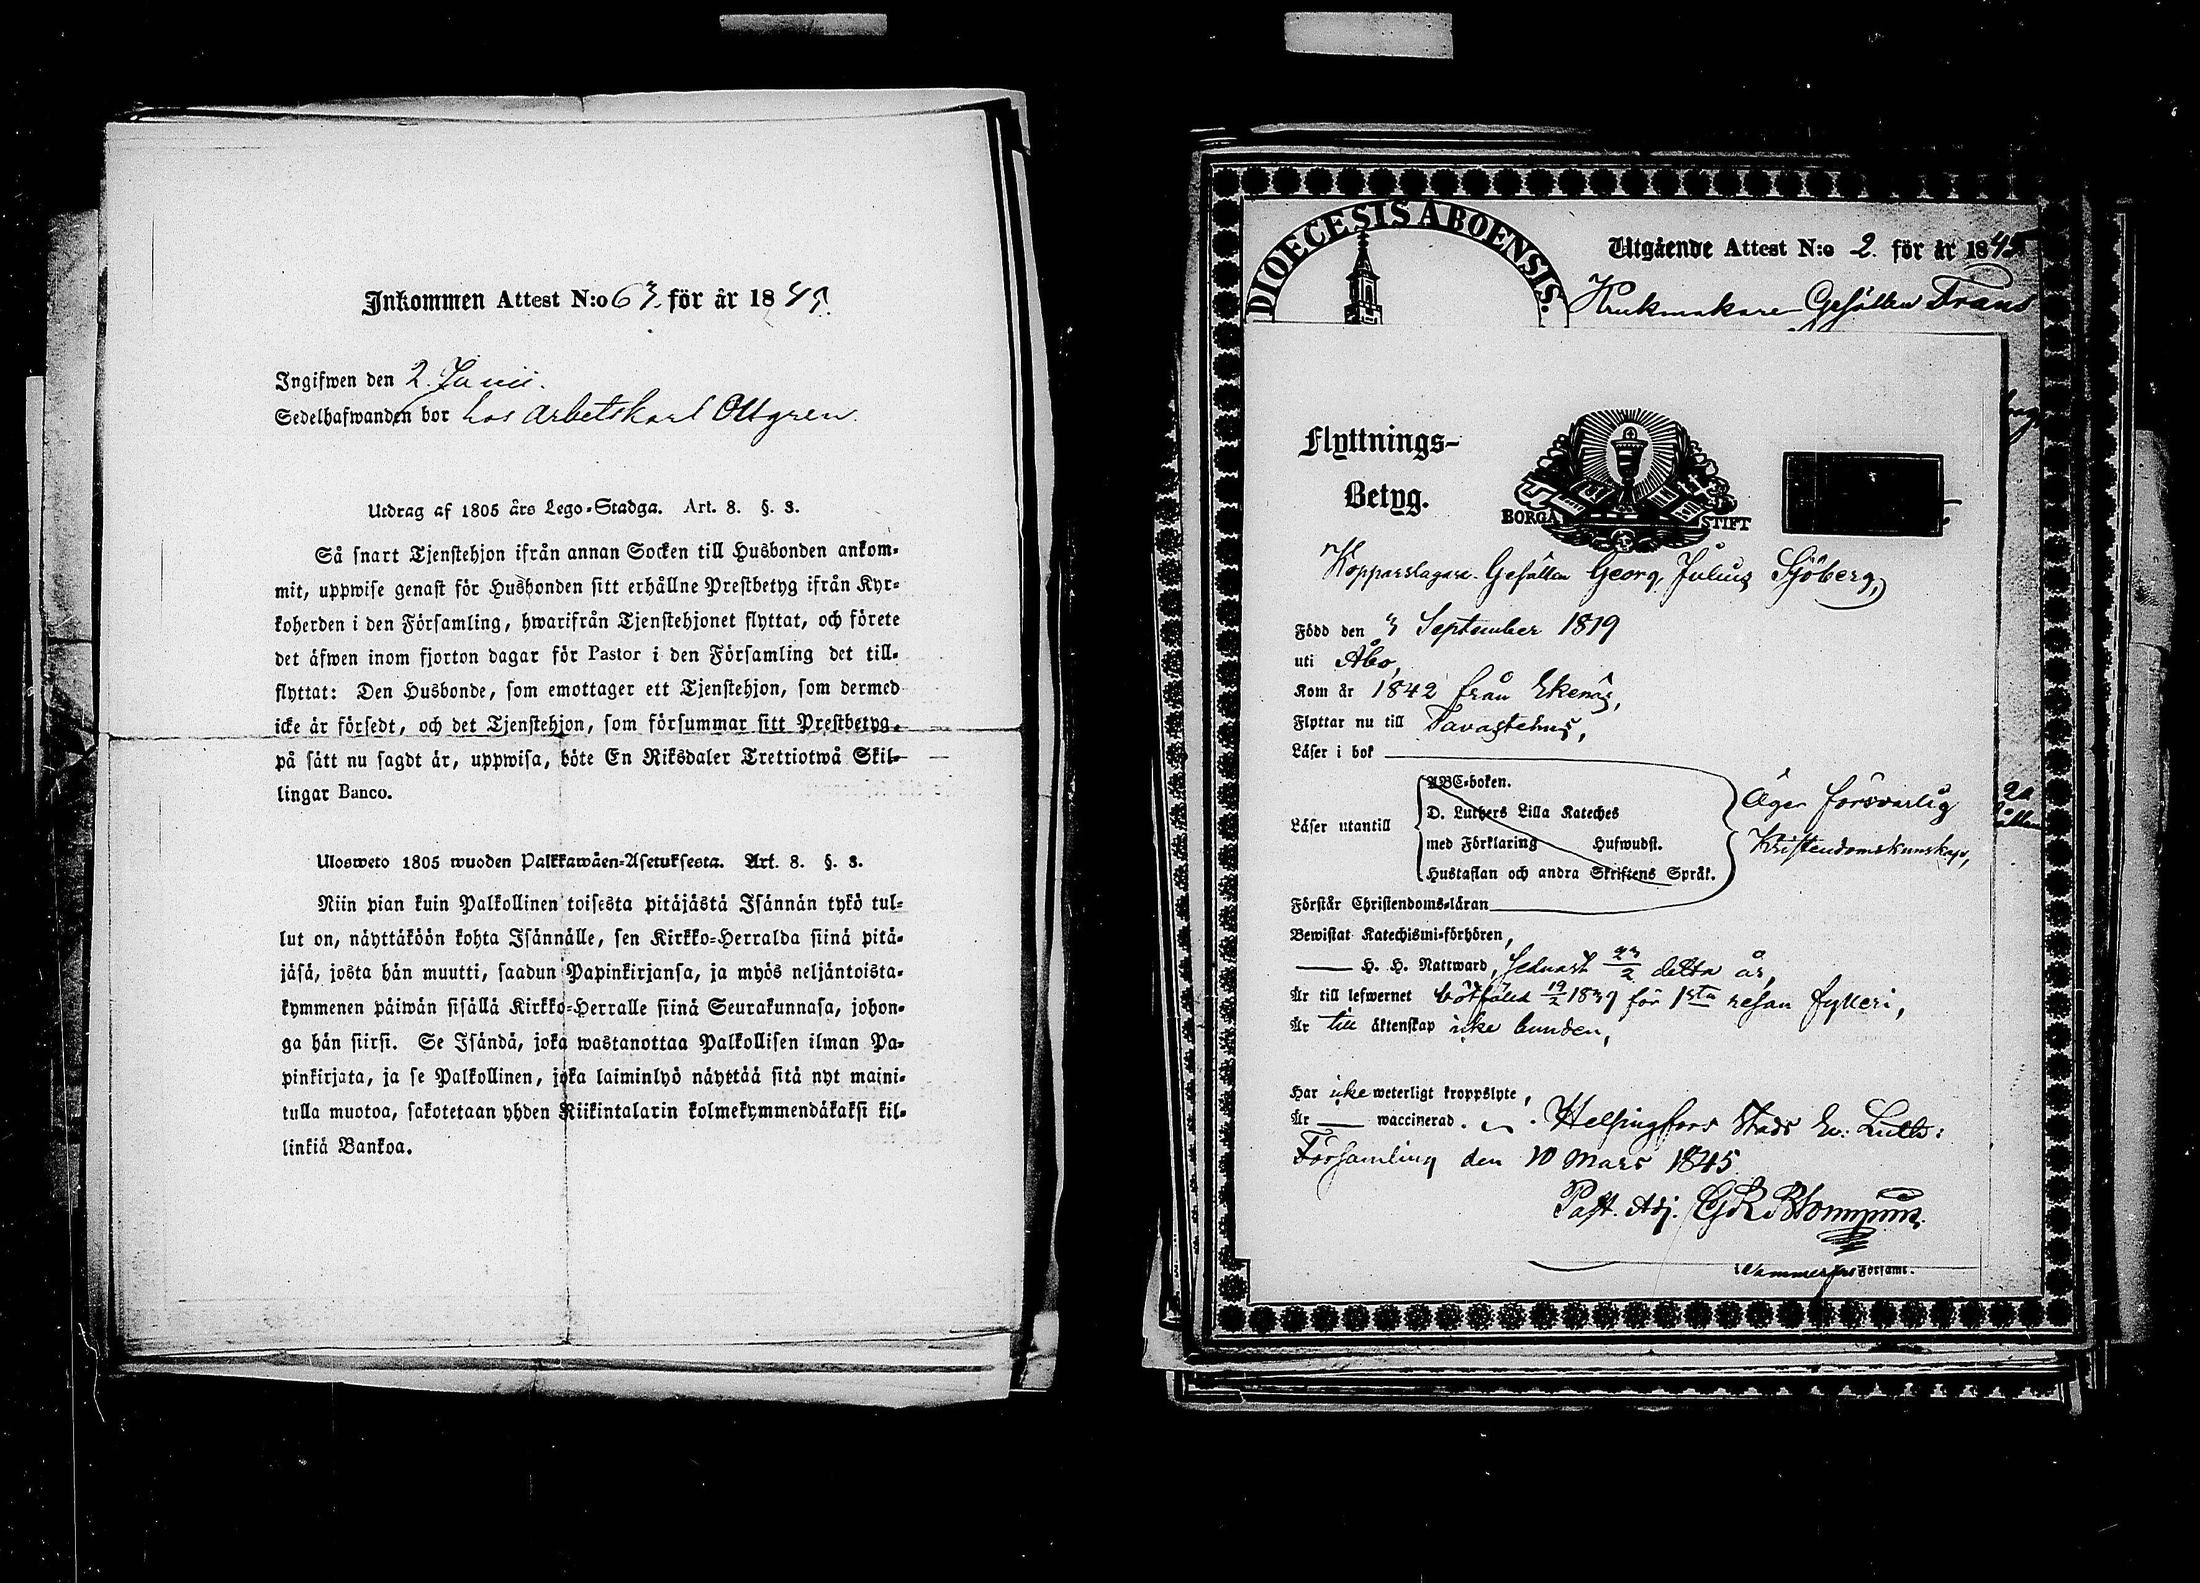 Inkommen Attest N:o 63 för år 1845.
Ingifwen den 2. Junii.
Sedelhafwanden bor hos Arbetskarl Ottgren.
Utdrag af 1805 års Lego-Stadga. Art. 8. §. 3.
Så snart Tjenstehjon ifrån annan Socken till Husbonden ankom-
mit, uppwise genast för Husbonden sitt erhållne Prestbetyg ifrån Kyr-
koherden i den Församling, hwarifrån Tjenstehjonet flyttat, och förete
det äfwen inom fjorton dagar för Pastor i den Församling det till-
flyttat: Den Husbonde, som emottager ett Tjenstehjon, som dermed
icke är försedt, och det Tjenstehjon, som försummar sitt Prestbetyg,
på sätt nu sagdt är, uppwisa, böte En Riksdaler Trettiotwå Skil-
lingar Banco.
Ulosweto 1805 wuoden Palkkawäen-Asetuksesta. Art. 8. §. 3.
Niin pian kuin Palkollinen toisesta pitäjästä Isännän tykö tul-
lut on, näyttäköön kohta Isännälle, sen Kirkko-Herralda siinä pitä-
jäsä, josta hän muutti, saadun Papinkirjansa, ja myös neljäntoista-
kymmenen päiwän sisällä Kirkko-Herralle siinä Seurakunnasa, johon-
ga hän siirsi. Se Isändä, joka wastanottaa Palkollisen ilman Pa-
pinkirjata, ja se Palkollinen, joka laiminlyö näyttää sitä nyt maini-
tulla muotoa, sakotetaan yhden Riikintalarin kolmekymmendäkaksi kil-
linkiä Bankoa.
DIOECESIS ABOENSIS.
Utgående Attest N:o 2. för år 1845
Krukmakare Gesällen Frans
Flyttnings-
Betyg.
BORGÅ STIFT
Kopparslagare Gesällen Georg Julius Sjöberg,
Född den 3 September 1819
uti Åbo,
Kom år 1842 från Ekenäs,
Flyttar nu till Tavastehus,
Läser i bok
ABC-boken.
Läser utantill D. Luthers Lilla Kateches
med Förklaring Hufwudst.
Hustaflan och andra Skriftens Språk.
Äger försvarlig
Kristendomskunskap,
Förstår Christendoms-läran
Bewistat Katechismi-förhören,
H. H. Nattward, senast 23/2 detta år,
Är till lefwernet bötfäld 19/2 1839 för 1sta resan fylleri,
Är till äktenskap icke bunden,
Har icke weterligt kroppslyte,
Är waccinerad. Helsingfors Stads Ev: Luth:
Församling den 10 Mars 1845
Past. Adj.
Församl.